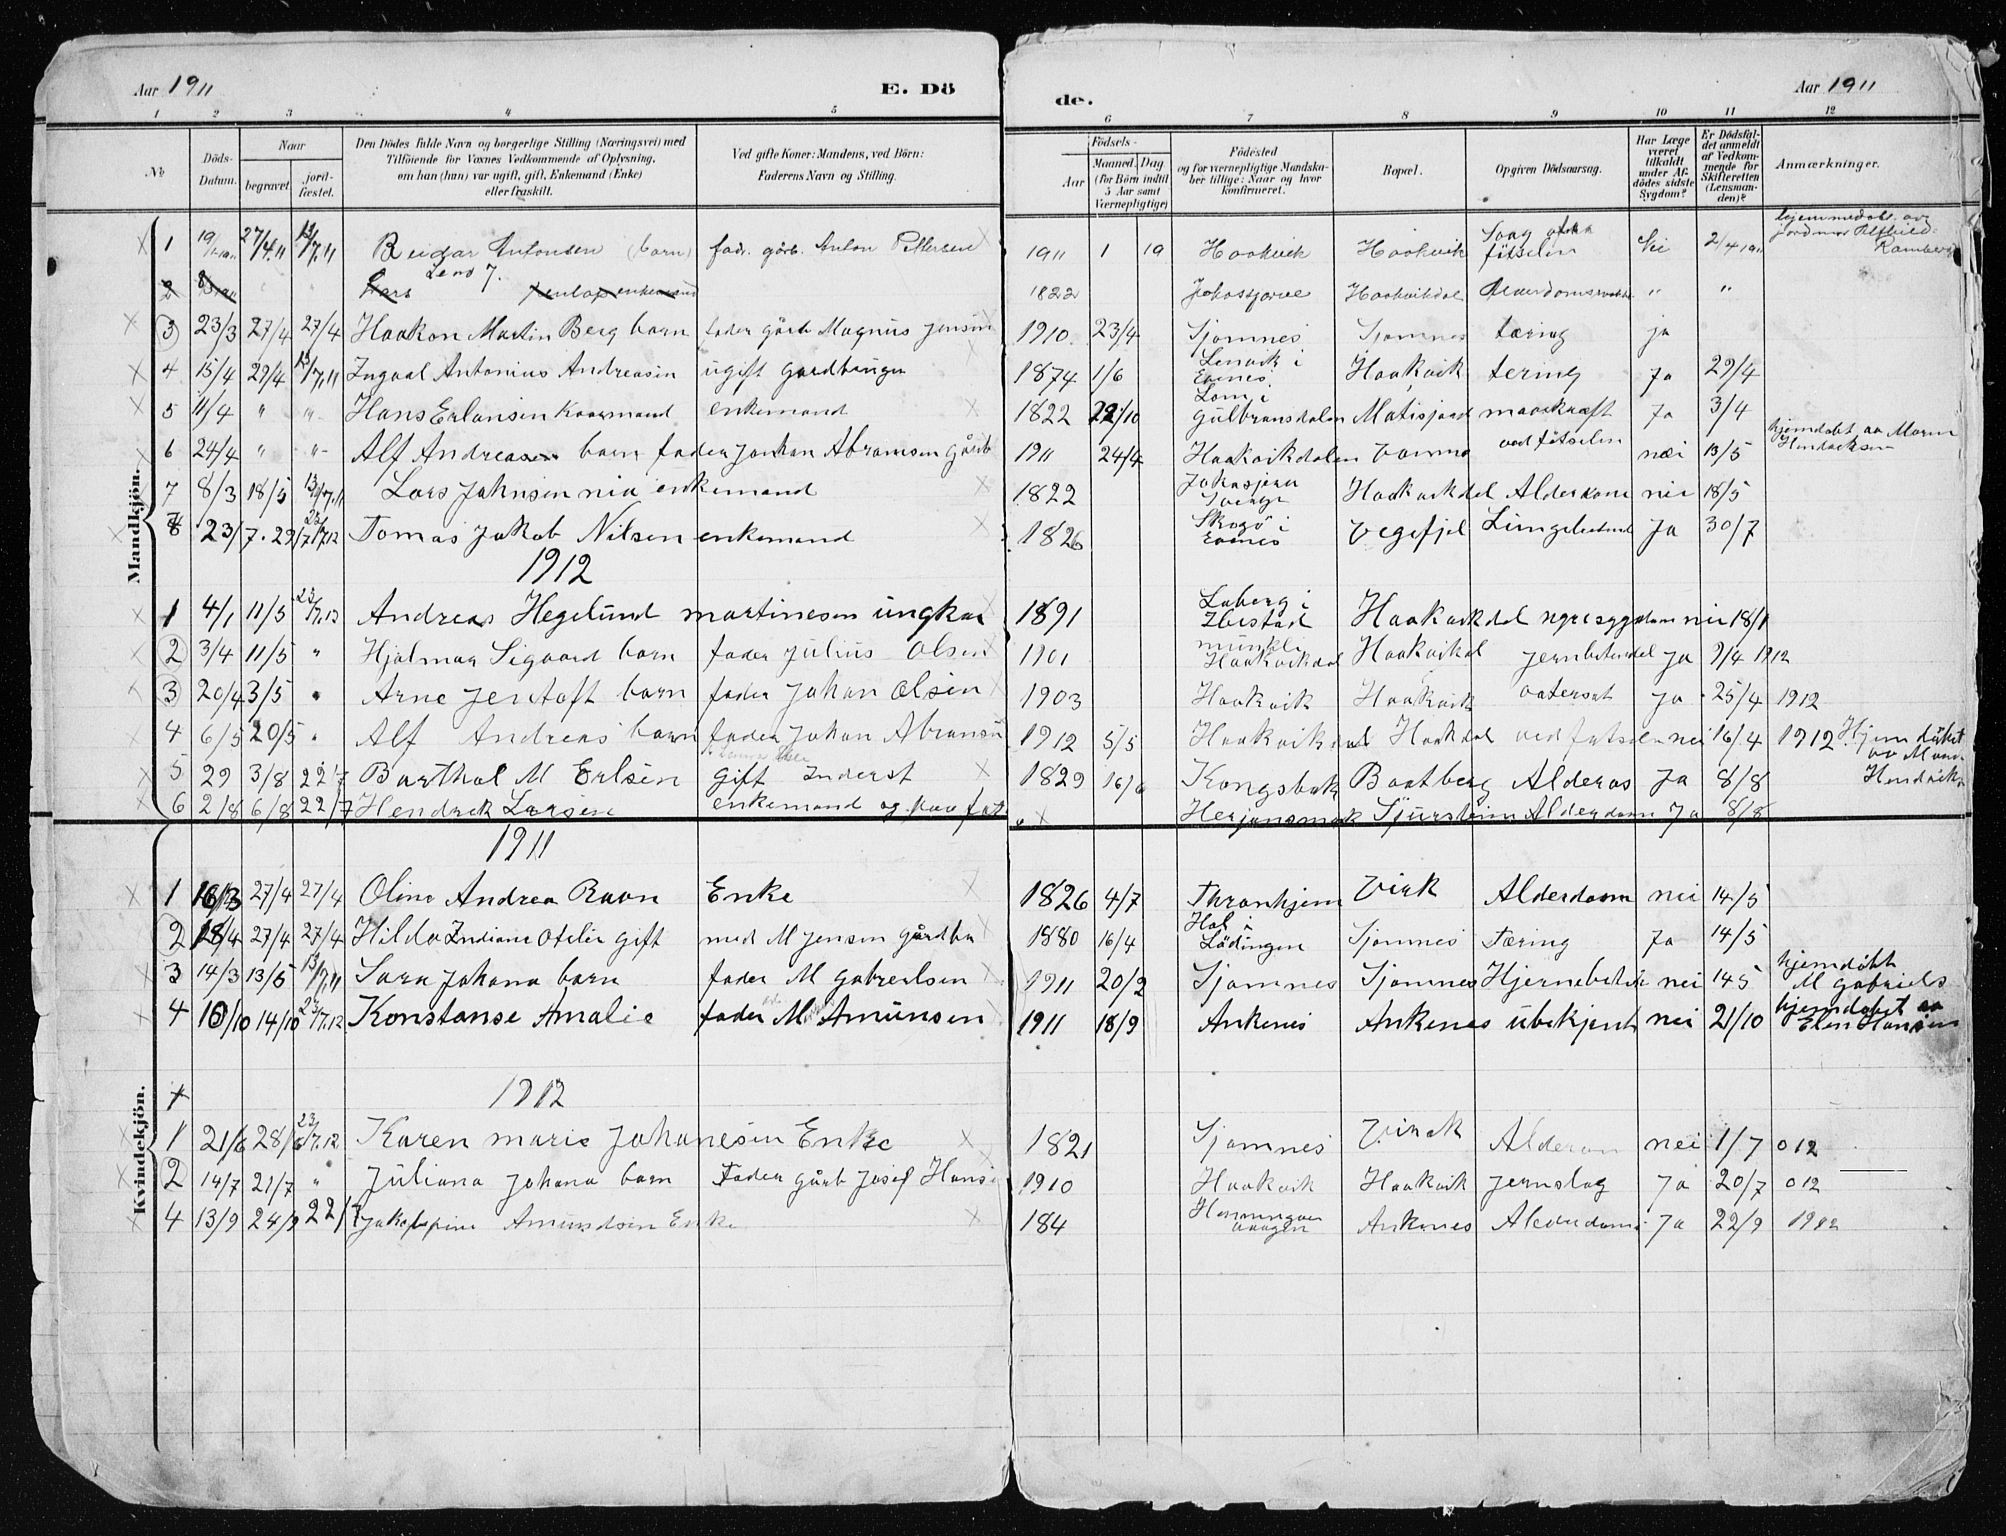 Aar 1911
E. Dö
de.
Aar 1911
1 2 3 4 5 6 7 8 9 10 11 12
No
Döds-Datum.
Naar
begravet.
jord-fæstet.
Den Dödes fulde Navn og borgerlige Stilling (Næringsvei) med
Tilföiende for Voxnes Vedkommende af Oplysning,
om han (hun) var ugift, gift, Enkemand (Enke)
eller fraskilt.
Ved gifte Koner: Mandens, ved Börn:
Faderens Navn og Stilling.
Födsels-
Aar
Maaned. Dag
(for Börn indtil
5 Aar samt
Værnepligtige)
Födested
og for værnepligtige Mandska-
ber tillige: Naar og hvor
konfirmeret.
Bopæl.
Opgiven Dödsaarsag.
Har Læge
været
tilkaldt
under Af-
dödes sidste
Sygdom?
Er Dödsfal-
det anmeldt
af Vedkom-
mende for
Skifteretten
(Lensman-
den)?
Anmærkninger.
Mandkjön.
1 27/4.11 13/7.11 Reidar Antonsen (barn) fad. gårb. Anton Pettersen 1911 1 19 Haakvik Haakvik Svag fötselen Nei 2/4 1911 hjemmedøbt av jordmor Ramberg
2 Lars enkemand 1822 Haakvikdal Alderdomssvakhet " "
3 23/3 27/4 27/4 Haakon Martin Berg barn fader gårb Magnus Jensen 1910 23/4 Sjomnes Sjomnes tæring ja
4 15/4 29/4 13/7.11 Ingval Antonius Andreasen ugift gardbruger 1874 1/6 Lenvik i Evenes Haakvik tering Ja 29/4
5 11/4 " " Hans Erlansen Kaarmand enkemand 1822 22/10 Lom i Gulbransdalen Matisjord mavekræft Ja 3/4
6 24/4 " " Alf Andreas barn fader Johan Abramsen gårb 1911 24/4 Haakvikdalen ved fötselen nei 13/5 hjemdøbt av Hendriksen
7 8/3 18/5 13/7.11 Lars Johnsen nia enkemand 1822 Haakvikdal Alderdom nei 18/5
8 23/7. 29/7 23/7.12 Tomas Jakob Nilsen enkemand 1826 Skogö i Evenes Vegefjel Lungebetend Ja 30/7
1912
1 4/1 11/5 23/7.12 Andreas Hegelund martinesen ungkar 1891 Laberg i Ibestad Haakvikdal nyresygdom nei 18/1
2 3/4 11/5 " Hjalmar Sigvard barn fader Julius Olsen 1901 Haakvikdal Haakvikdal Jernbetendel Ja 9/4 1912
3 20/4 3/5 " Arne Jentoft barn fader Johan Olsen 1903 Haakvik Haakvik vatersot Ja 25/4 1912
4 6/5 20/5 " Alf Andreas barn fader Johan Abramsen 1912 5/5 Haakvikdal Haakdal ved fötselen nei 16/4 1912 Hjem döbt av Hendrik
5 29 3/8 22/7 Barthol M Erlsen gift Inderst 1829 16/6 Kongsbak Baatberg Alderos Ja 8/8
6 2/8 6/8 22/7 Hendrek Larsen enkemand og fat Herjansmark Sjursheim Alderdom Ja 8/8
Kvindekjön.
1911
1 16/3 27/4 27/4 Oline Andrea Ravn Enke 1826 4/7 Thronhjem Virk Alderdom nei 14/5
2 18/4 27/4 27/4 Hilda Indiane Otelie gift med M Jensen gårdbr 1880 16/4 Hol i Lödingen Sjomnes Tæring Ja 14/5
3 14/3 13/5 13/7.11 Sara Johana barn fader M gabrelsen 1911 20/2 Sjomnes Sjomnes Hjernebetend nei 14 5 hjemdöbt M gabriels
4 10/10 14/10 23/7.12 Konstanse Amalie fader M Amunsen 1911 18/9 Ankenes Ankenes übekjent nei 21/10 hjemdøbet av Elen Hansen
1912
1 21/6 28/6 23/7.12 Karen marie Johanesen Enke 1821 Sjomnes Virak Alderdom nei 1/7 012
2 14/7 21/7 " Juliana Johana barn Fader gårb Josef Hansen 1910 Haakvik Haakvik Jernslag Ja 20/7 012
4 13/9 24/9 22/7 Jakobpine Amundsen Enke 184 Henningsvaagen Ankenes Alderdoms Ja 22/9 1912